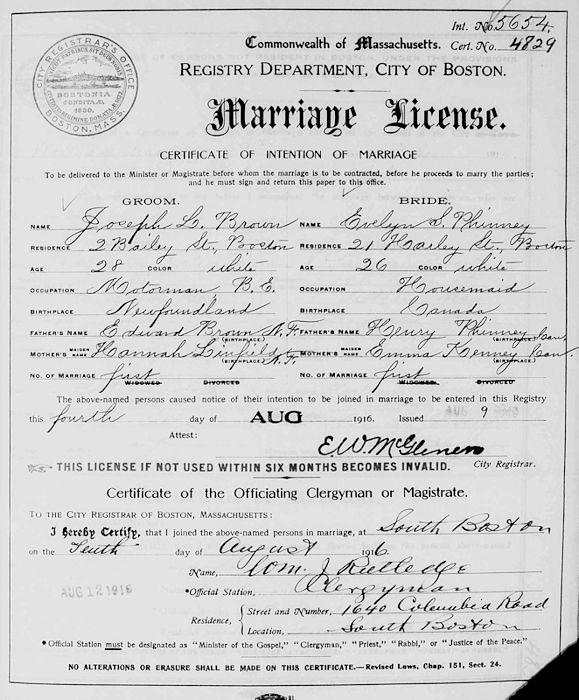 Int. No. 5654.
Commonwealth of Massachusetts. Cert. No. 4829
CITY REGISTRAR'S OFFICE
BOSTONIA
CONDITA A.D.
1630.
BOSTON, MASS.
REGISTRY DEPARTMENT, CITY OF BOSTON.
Marriage License.
CERTIFICATE OF INTENTION OF MARRIAGE
To be delivered to the Minister or Magistrate before whom the marriage is to be contracted, before he proceeds to marry the parties;
and he must sign and return this paper to this office.
GROOM. BRIDE.
NAME Joseph L. Brown NAME Evelyn S. Phinney
RESIDENCE 2 Bailey St., Boston RESIDENCE 21 Harley St., Boston
AGE 28 COLOR white AGE 26 COLOR white
OCCUPATION Motorman B. E. OCCUPATION Housemaid
BIRTHPLACE Newfoundland BIRTHPLACE Canada
FATHER'S NAME Edward Brown N.F. (BIRTHPLACE) FATHER'S NAME Henry Phinney Can. (BIRTHPLACE)
MOTHER'S MAIDEN NAME Hannah Linfield N.F. (BIRTHPLACE) MOTHER'S MAIDEN NAME Emma Kenney Can. (BIRTHPLACE)
NO. OF MARRIAGE first WIDOWED DIVORCED NO. OF MARRIAGE first WIDOWED DIVORCED
The above-named persons caused notice of their intention to be joined in marriage to be entered in this Registry
this fourth day of AUG 1916. Issued AUG 9
Attest: E.W. McGlenen
City Registrar.
THIS LICENSE IF NOT USED WITHIN SIX MONTHS BECOMES INVALID.
Certificate of the Officiating Clergyman or Magistrate.
TO THE CITY REGISTRAR OF BOSTON, MASSACHUSETTS:
I hereby Certify, that I joined the above-named persons in marriage, at South Boston
on the Tenth day of August 1916.
AUG 12 1916
Name, Wm. J. Rutledge
*Official Station, Clergyman
Residence, { Street and Number, 1640 Columbia Road
Location, South Boston
*Official Station must be designated as "Minister of the Gospel," "Clergyman," "Priest," "Rabbi," or "Justice of the Peace."
NO ALTERATIONS OR ERASURE SHALL BE MADE ON THIS CERTIFICATE.—Revised Laws, Chap. 151, Sect. 24.